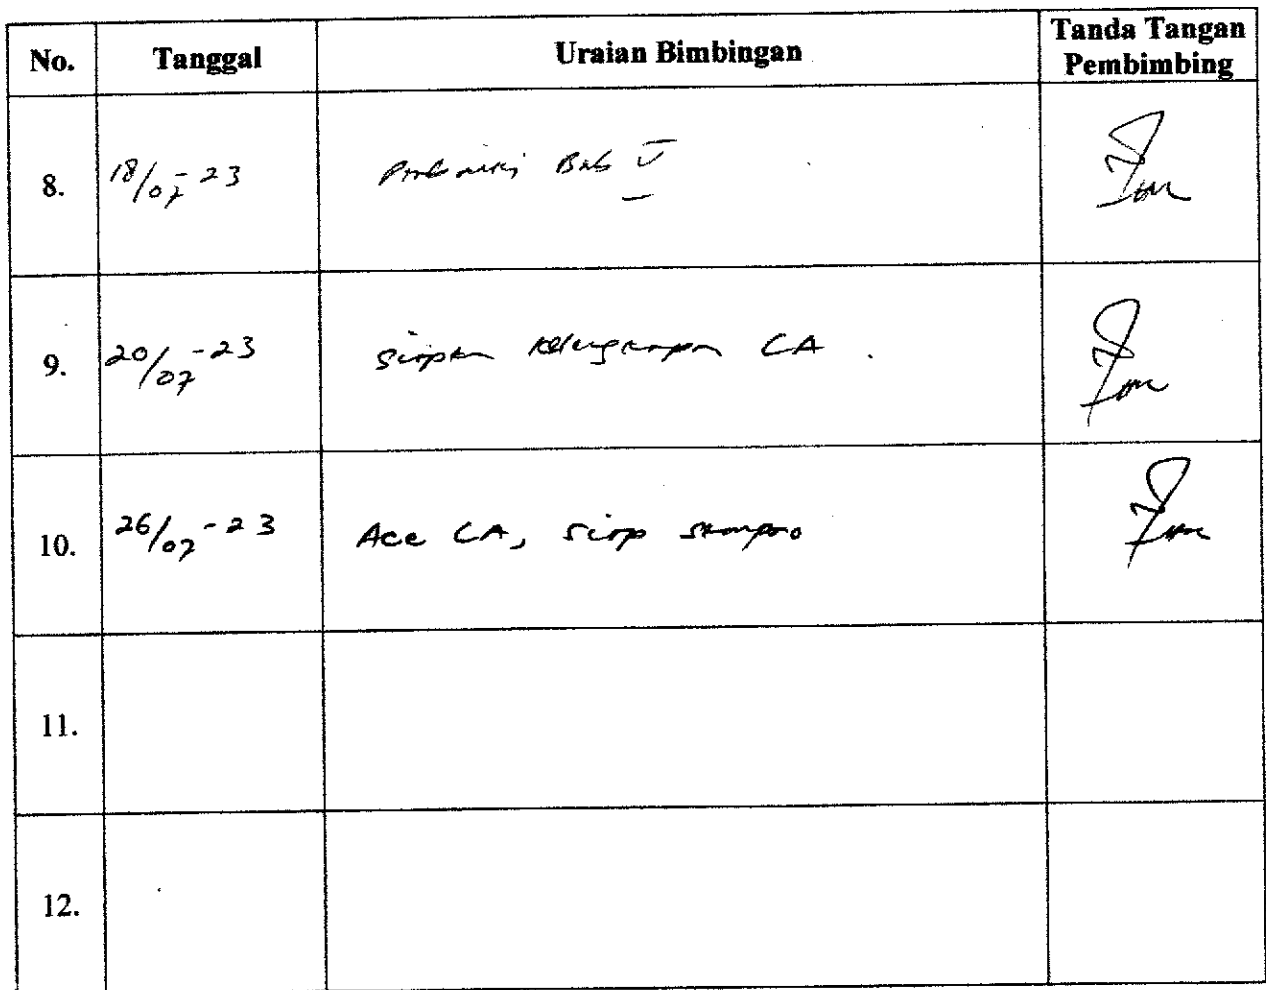 No. Tanggal Uraian Bimbingan Tanda Tangan
Pembimbing
8. 18/07-23 Perbaiki Bab V
9. 20/07-23 Siapkan kelengkapan CA.
10. 26/07-23 Acc CA, siap
11.
12.